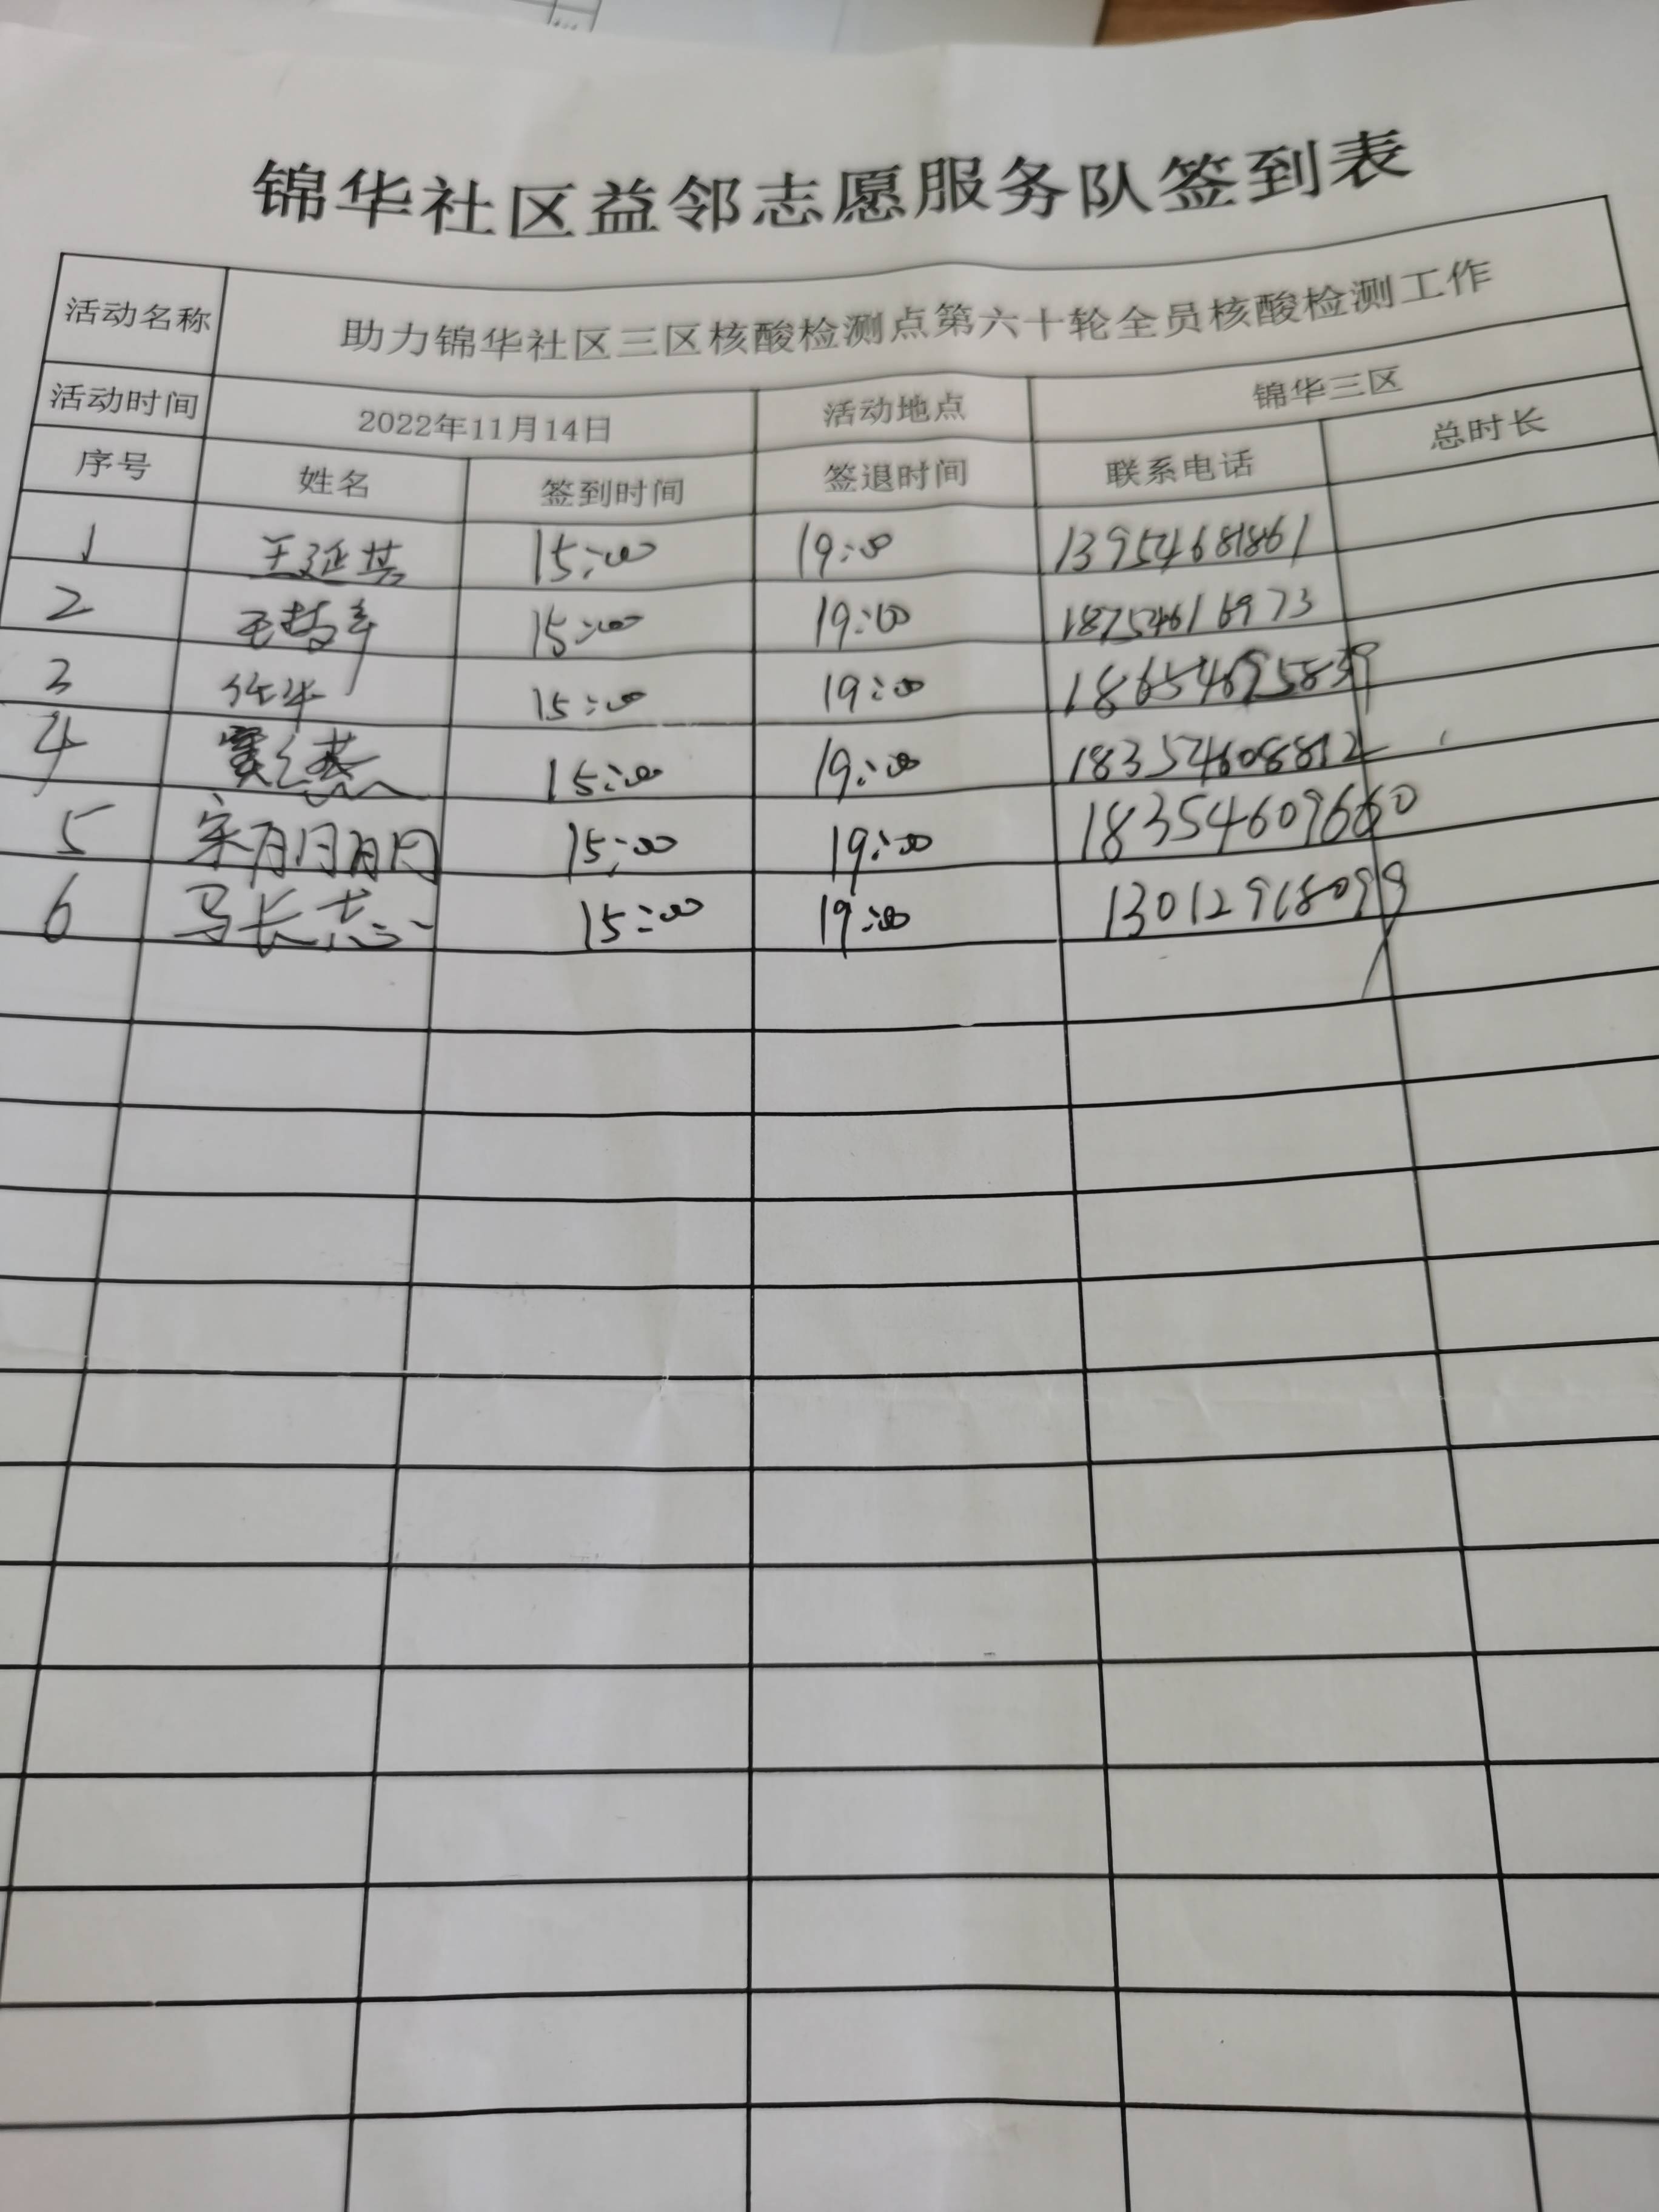 锦华社区益邻志愿服务队签到表
活动名称 助力锦华社区三区核酸检测点第六十轮全员核酸检测工作
活动时间 2022年11月14日 活动地点 锦华三区
序号 姓名 签到时间 签退时间 联系电话 总时长
1 王延其 15:00 19:00 13954681861
2 15:00 19:00 18754616973
3 任华 15:00 19:00 18654695839
4 15:00 19:00 18354608812
5 宋月月 15:00 19:00 18354609660
6 马长志 15:00 19:00 13012918099